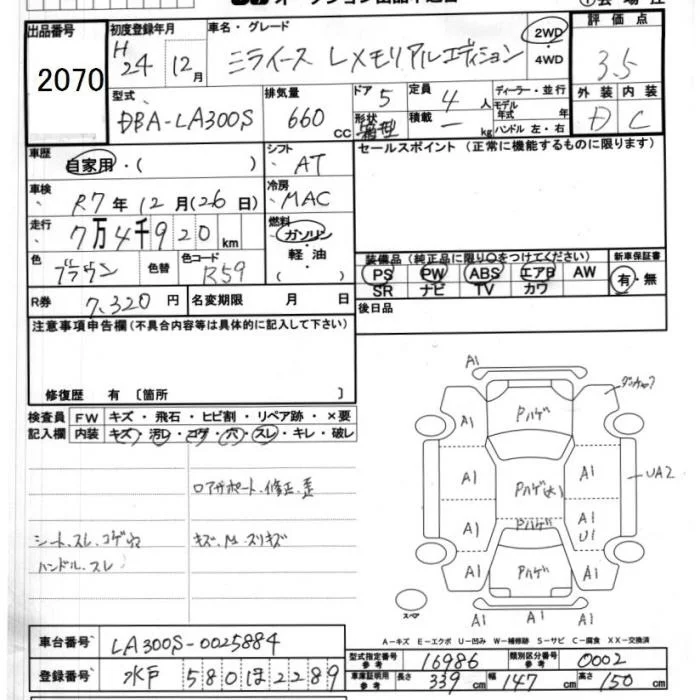 出品番号
2070
初度登録年月
H 24 年 12 月
車名・グレード
ミライース Lメモリアルエディション
2WD
4WD
評価点
3.5
型式
DBA-LA300S
排気量
660 cc
ドア 5
形状 箱型
定員 4 人
積載 — kg
ディーラー・並行
モデル年式 年
ハンドル 左・右
外装 内装
D C
車歴
自家用・( )
シフト
AT
セールスポイント (正常に機能するものに限ります)
車検
R7 年 12 月 (26 日)
冷房
MAC
走行
7万4千920 km
燃料
ガソリン
軽・油
( )
色
ブラウン
色替
色コード
R59
装備品 (純正品に限り○をつけてください)
PS PW ABS エアB AW
SR ナビ TV カワ
新車保証書
有・無
R券 7,320 円
名変期限 月 日
後日品
注意事項申告欄(不具合内容等は具体的に記入して下さい)
修復歴 有 〔箇所 〕
検査員記入欄
FW キズ・飛石・ヒビ割・リペア跡・×要
内装 キズ・汚レ・コゲ・穴・スレ・キレ・破レ
ロアサポート、修正、歪
シート、スレ、コゲ穴
キズ、M、スリキズ
ハンドル、スレ
A1
A1
Pハゲ
A1
Pハゲ(大)
A1
UA2
A1
Pハゲ
A1
U1
A1
Pハゲ
A1
A1
A1
A1
スペア
A-キズ E-エクボ U-凹み W-補修跡 S-サビ C-腐食 XX-交換済
車台番号 LA300S-0025884
登録番号 水戸 580 ほ 2289
型式指定番号 参考 16986
類別区分番号 参考 0002
車庫証明用 参考 長さ 339 cm 幅 147 cm 高さ 150 cm